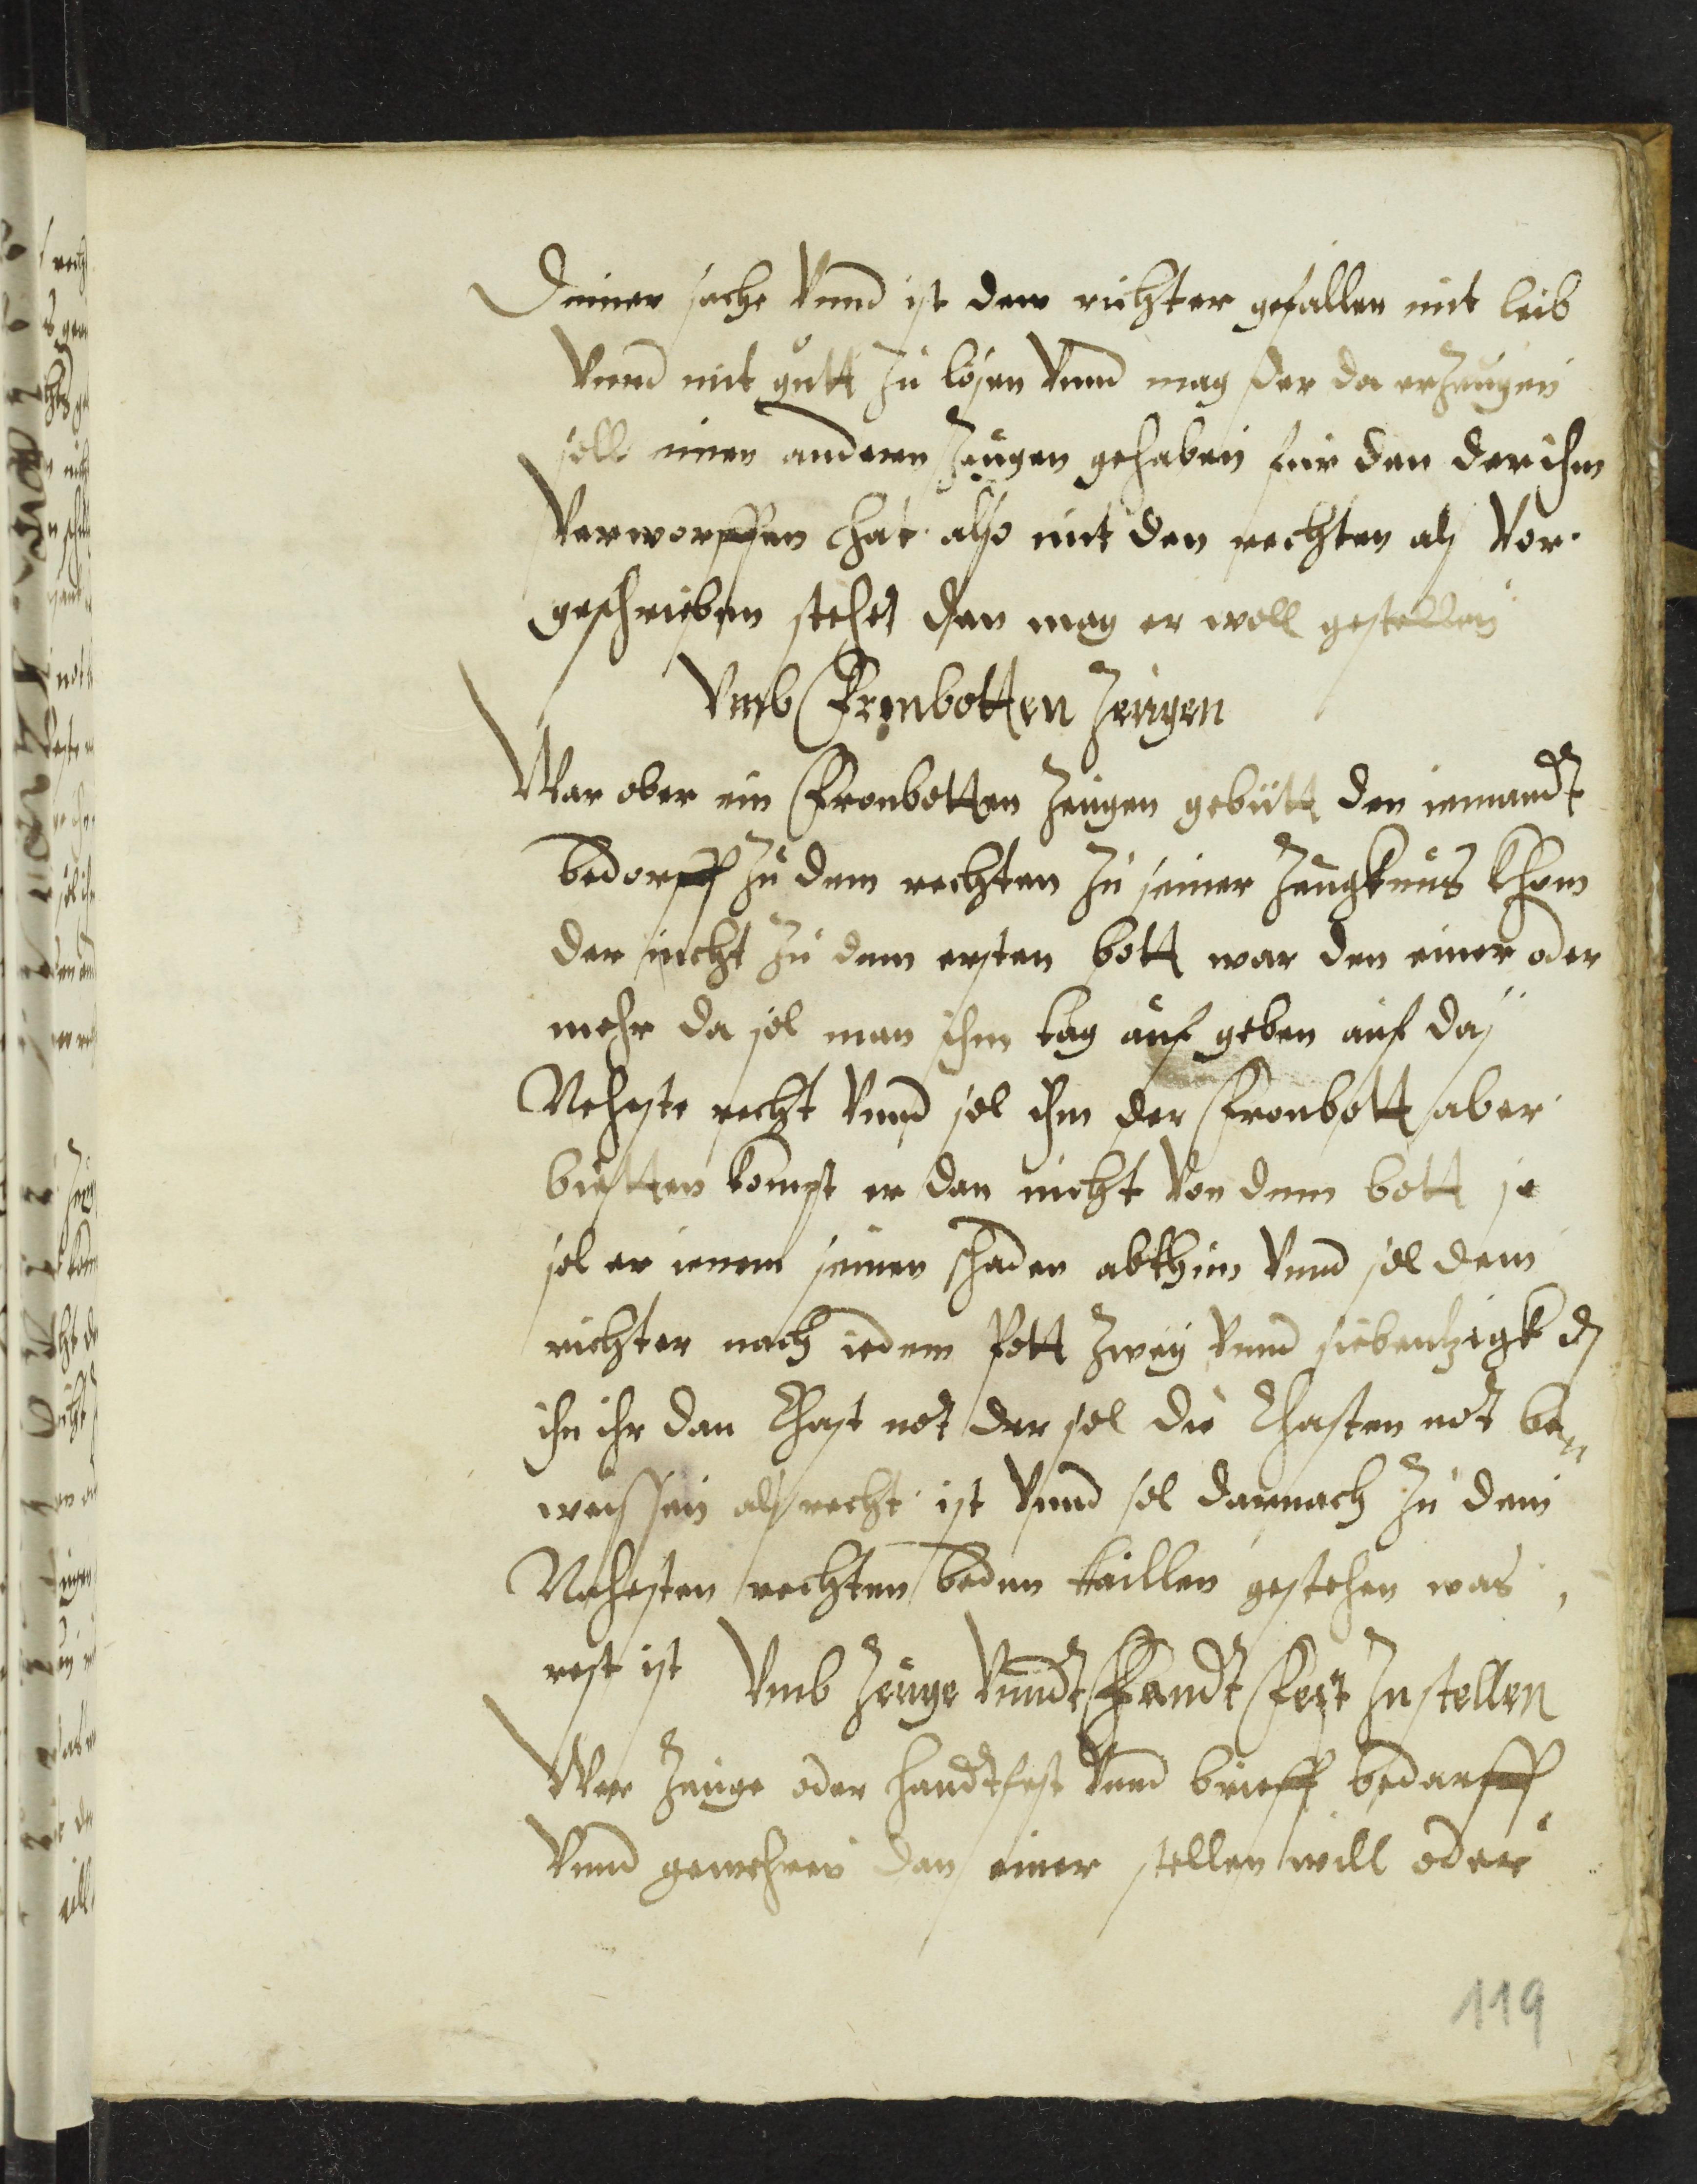 Deiner sache Vnnd ist dem richter gefallen mit leib
Vnnd mit gutt zu lösen Vnnd mag der da erzeugen
soll einen anderen zeugen gehaben für den der ihm
Verworffen hat also mit den rechten als Vor
geschrieben stehet dan mag er woll gestellen
Vmb Fronbotten zeugen
War ober ein Fronbotten zeugen gebütt den iemandt
bedorff zu dem rechten zu seiner zeugknus khom
der nicht zu dem ersten bott war den einer oder
mehr da sol man ihm tag auf geben auf das
Neheste recht Vnnd sol ihm der Fronbott aber
bietten kompt er dan nicht Von dem bott so
sol er ienem seinen schaden abthun Vnnd sol dem
richter nach iedem Pott zwey Vnnd siebentzigk ₰
ihn ihr dan Ehaft not der sol die Ehaften not be„
weissen als recht ist Vnnd sol darnach zu dem
Nehesten rechten beden taillen gestehen was
rest ist Vmb zeuge Vnndt Handt Fest zu stellen
Wer zeuge oder handtfest Vnnd brieff bedarff
Vnnd gewehren dan einer stellen will oder
119